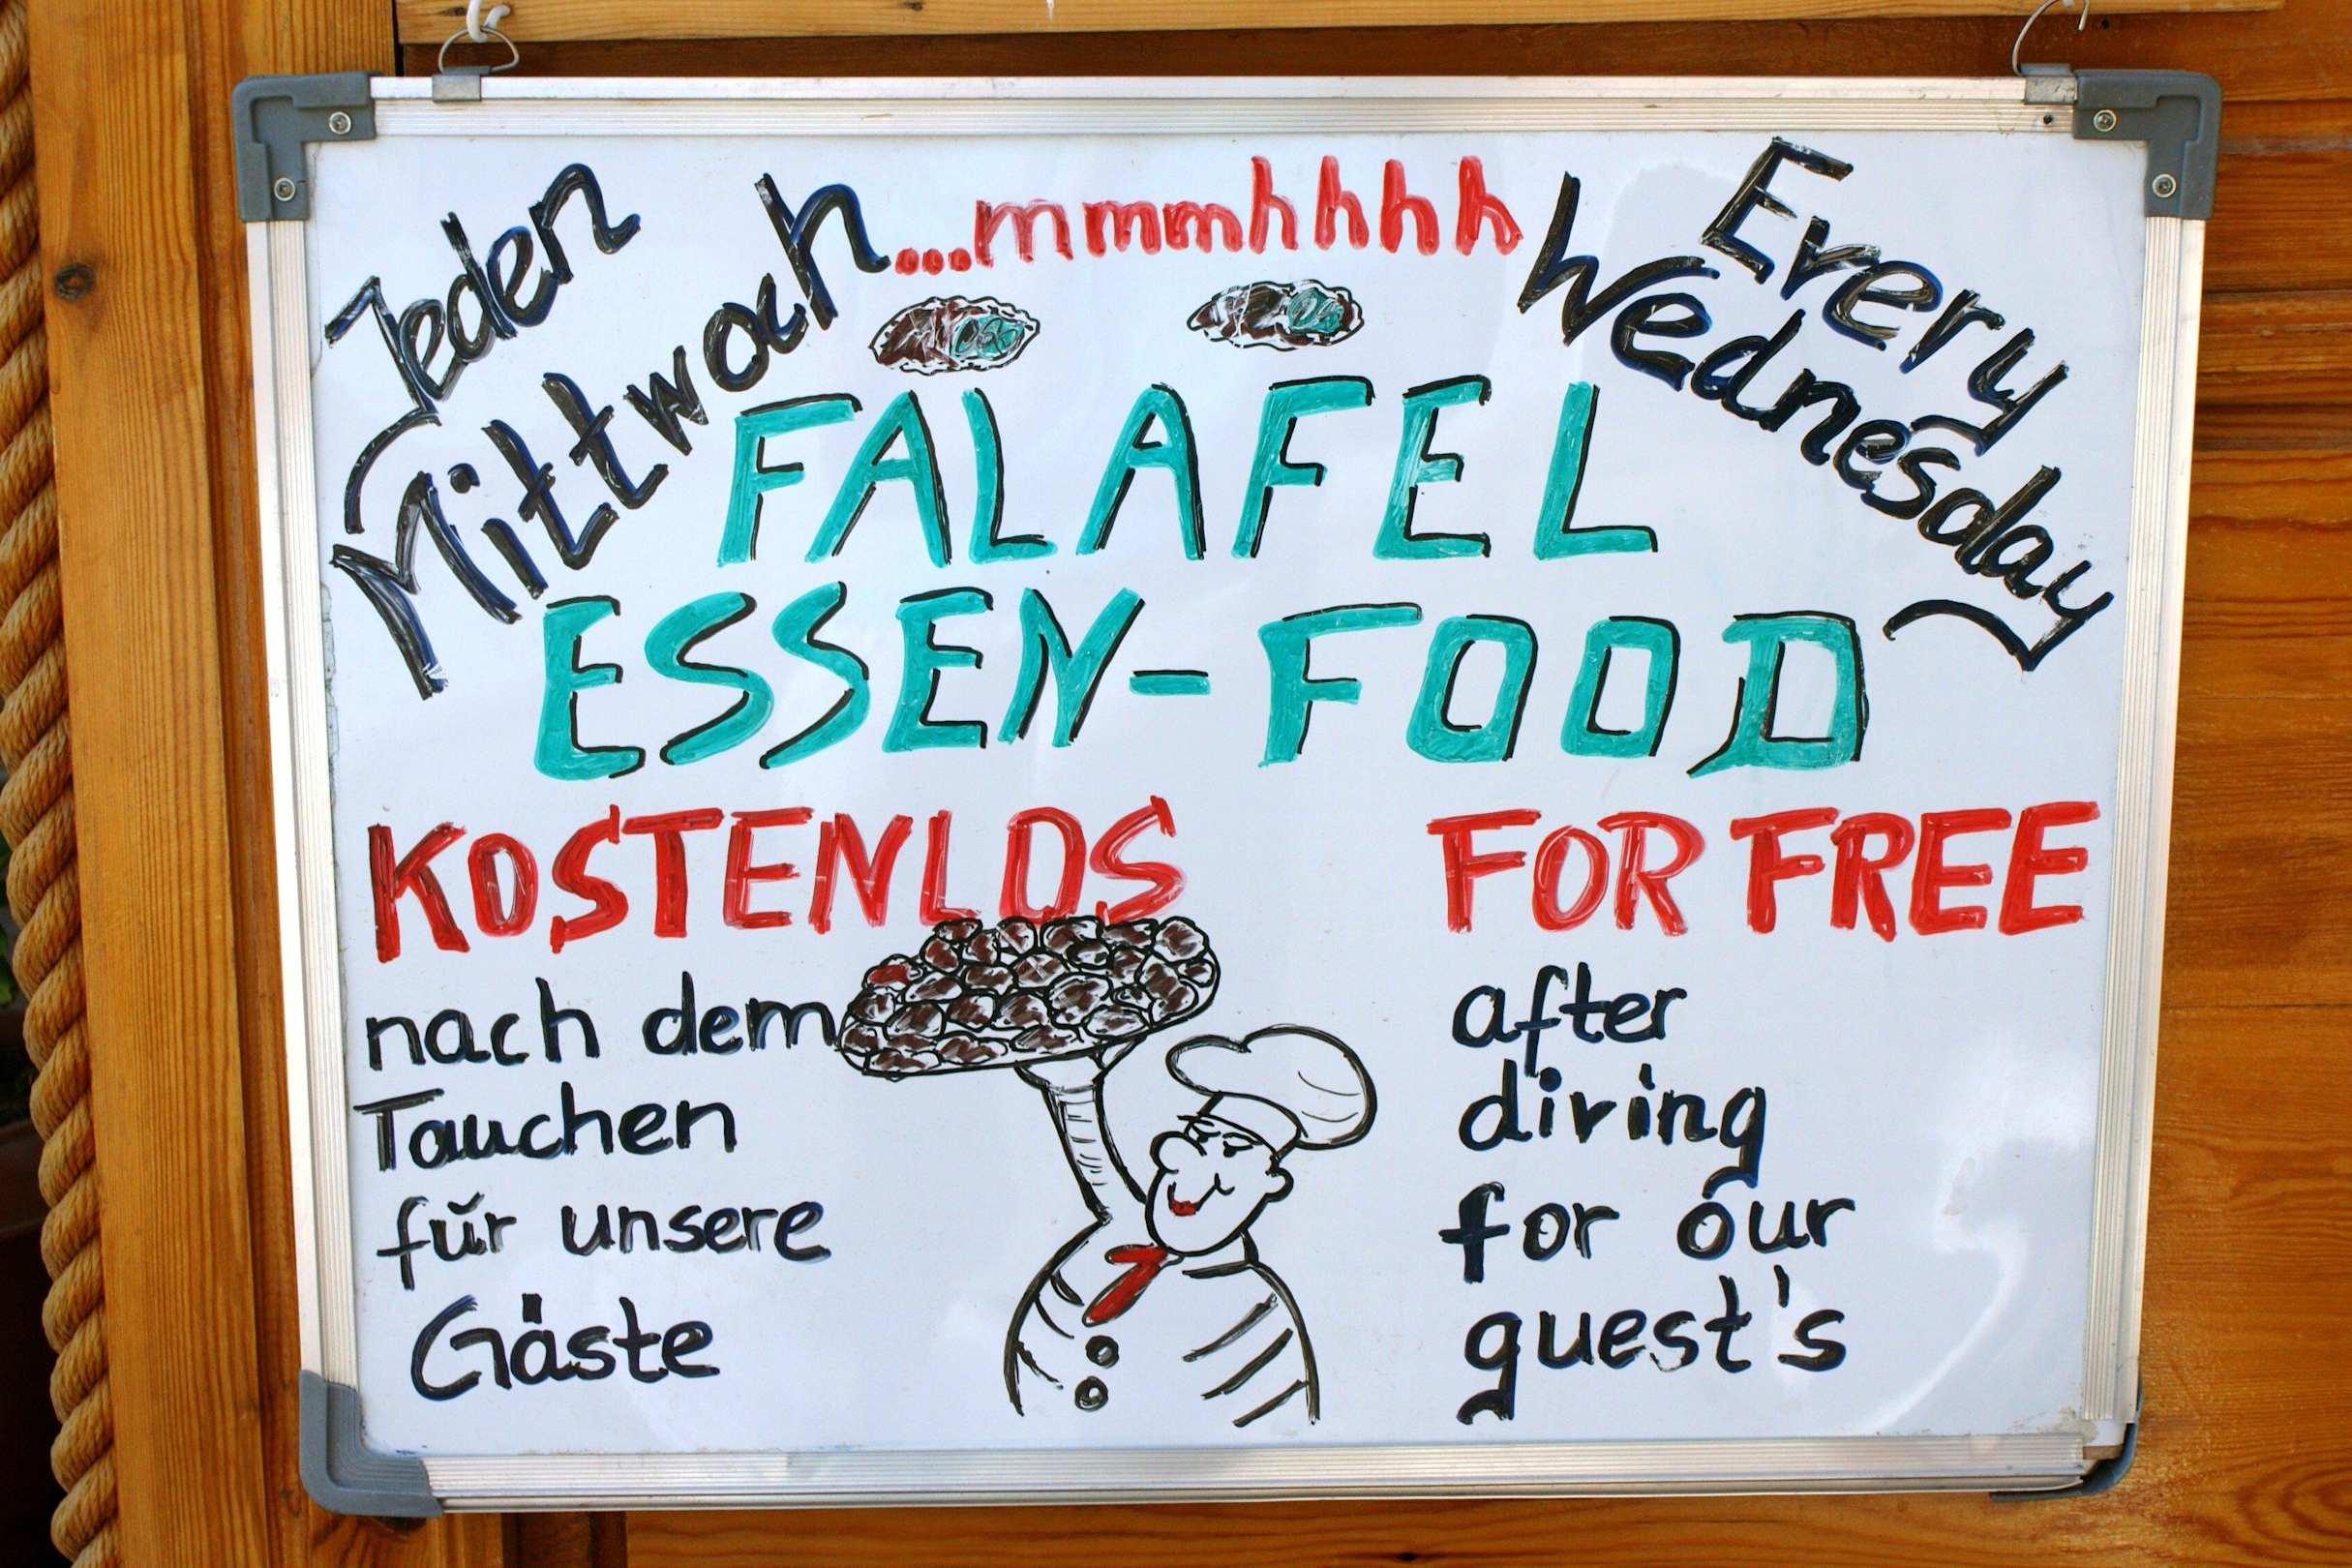 Jeden
Mittwoch
...mmmhhhh
Every
Wednesday
FALAFEL
ESSEN-FOOD
KOSTENLOS
FOR FREE
nach dem
Tauchen
für unsere
Gäste
after
diving
for our
guest's